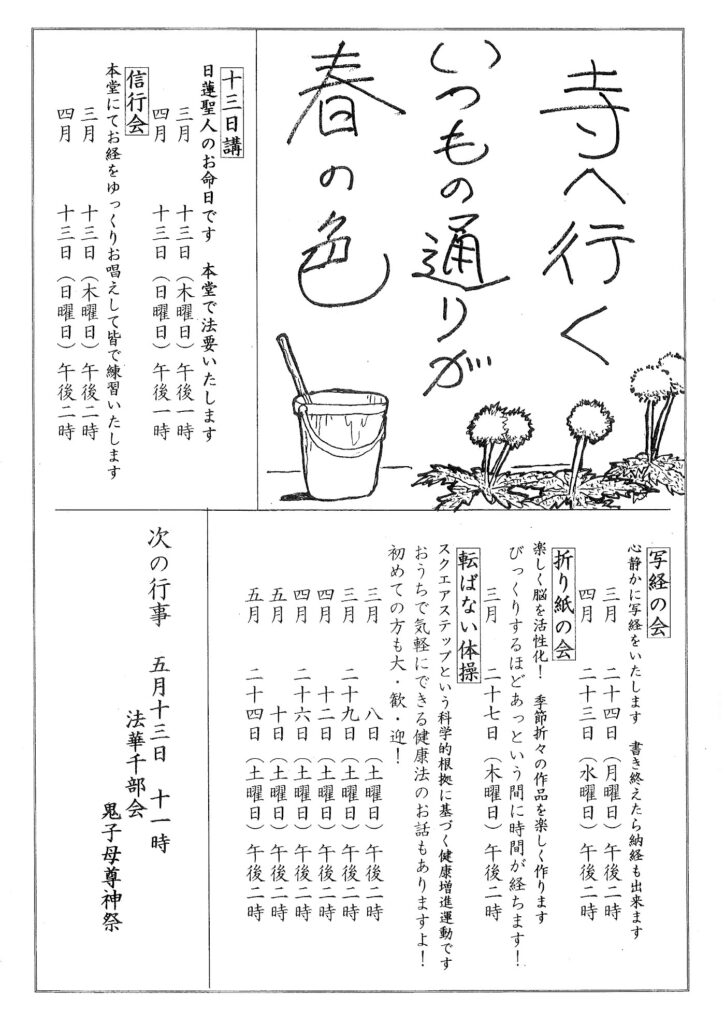 寺へ行く
いつもの通りが
春の色
十三日講
日蓮聖人のお命日です　本堂で法要いたします
三月　十三日（木曜日）午後一時
四月　十三日（日曜日）午後一時
信行会
本堂にてお経をゆっくりお唱えして皆で練習いたします
三月　十三日（木曜日）午後二時
四月　十三日（日曜日）午後二時
写経の会
心静かに写経をいたします　書き終えたら納経も出来ます
三月　二十四日（月曜日）午後二時
四月　二十三日（水曜日）午後二時
折り紙の会
楽しく脳を活性化！　季節折々の作品を楽しく作ります
びっくりするほどあっという間に時間が経ちます！
三月　二十七日（木曜日）午後二時
転ばない体操
スクエアステップという科学的根拠に基づく健康増進運動です
おうちで気軽にできる健康法のお話もありますよ！
初めての方も大・歓・迎！
三月　八日（土曜日）午後二時
三月　二十九日（土曜日）午後二時
四月　十二日（土曜日）午後二時
四月　二十六日（土曜日）午後二時
五月　十日（土曜日）午後二時
五月　二十四日（土曜日）午後二時
次の行事　五月十三日　十一時
法華千部会
鬼子母尊神祭